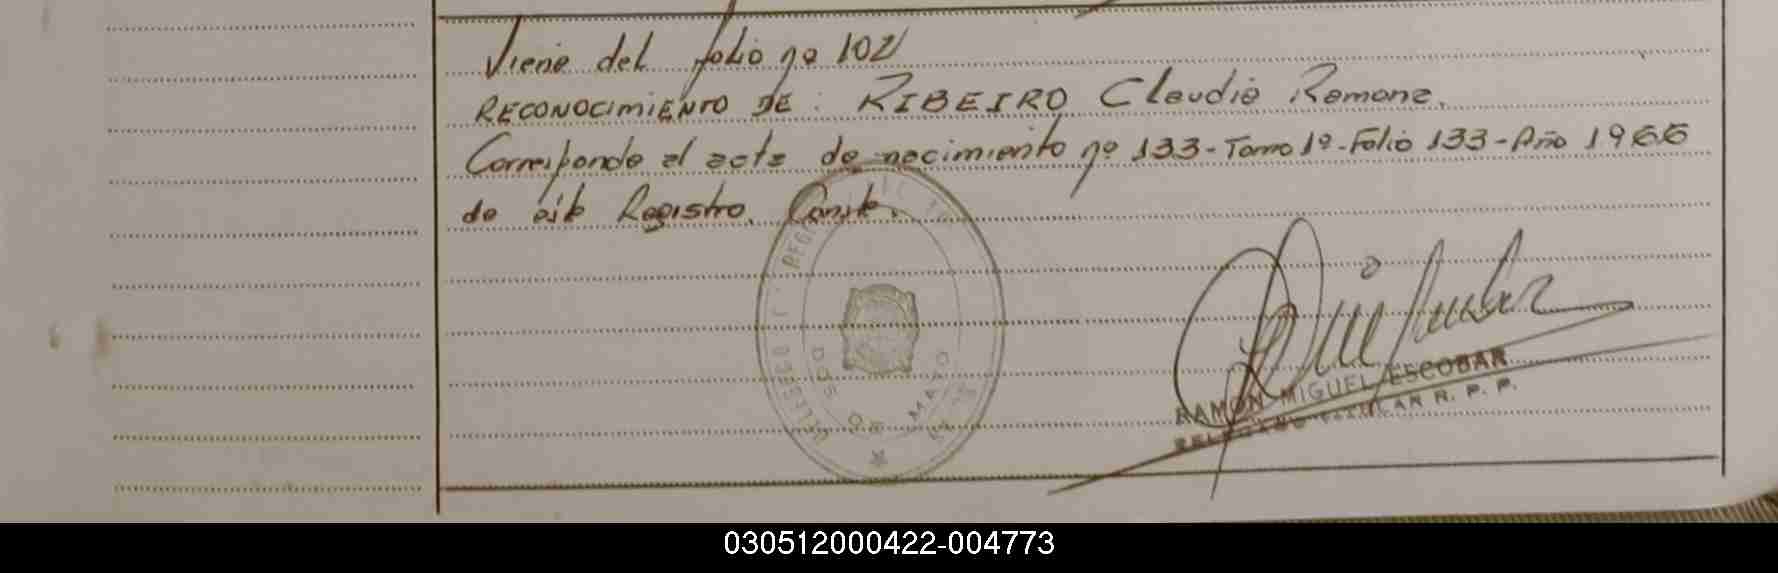 Viene del folio nº 102
RECONOCIMIENTO DE: RIBEIRO Claudia Ramona.
Corresponde al acta de nacimiento nº 133-Tomo 1º-Folio 133-Año 1966
de este Registro. Conste.
DOS DE MAYO
RAMON MIGUEL ESCOBAR
TITULAR R. P. P.
030512000422-004773